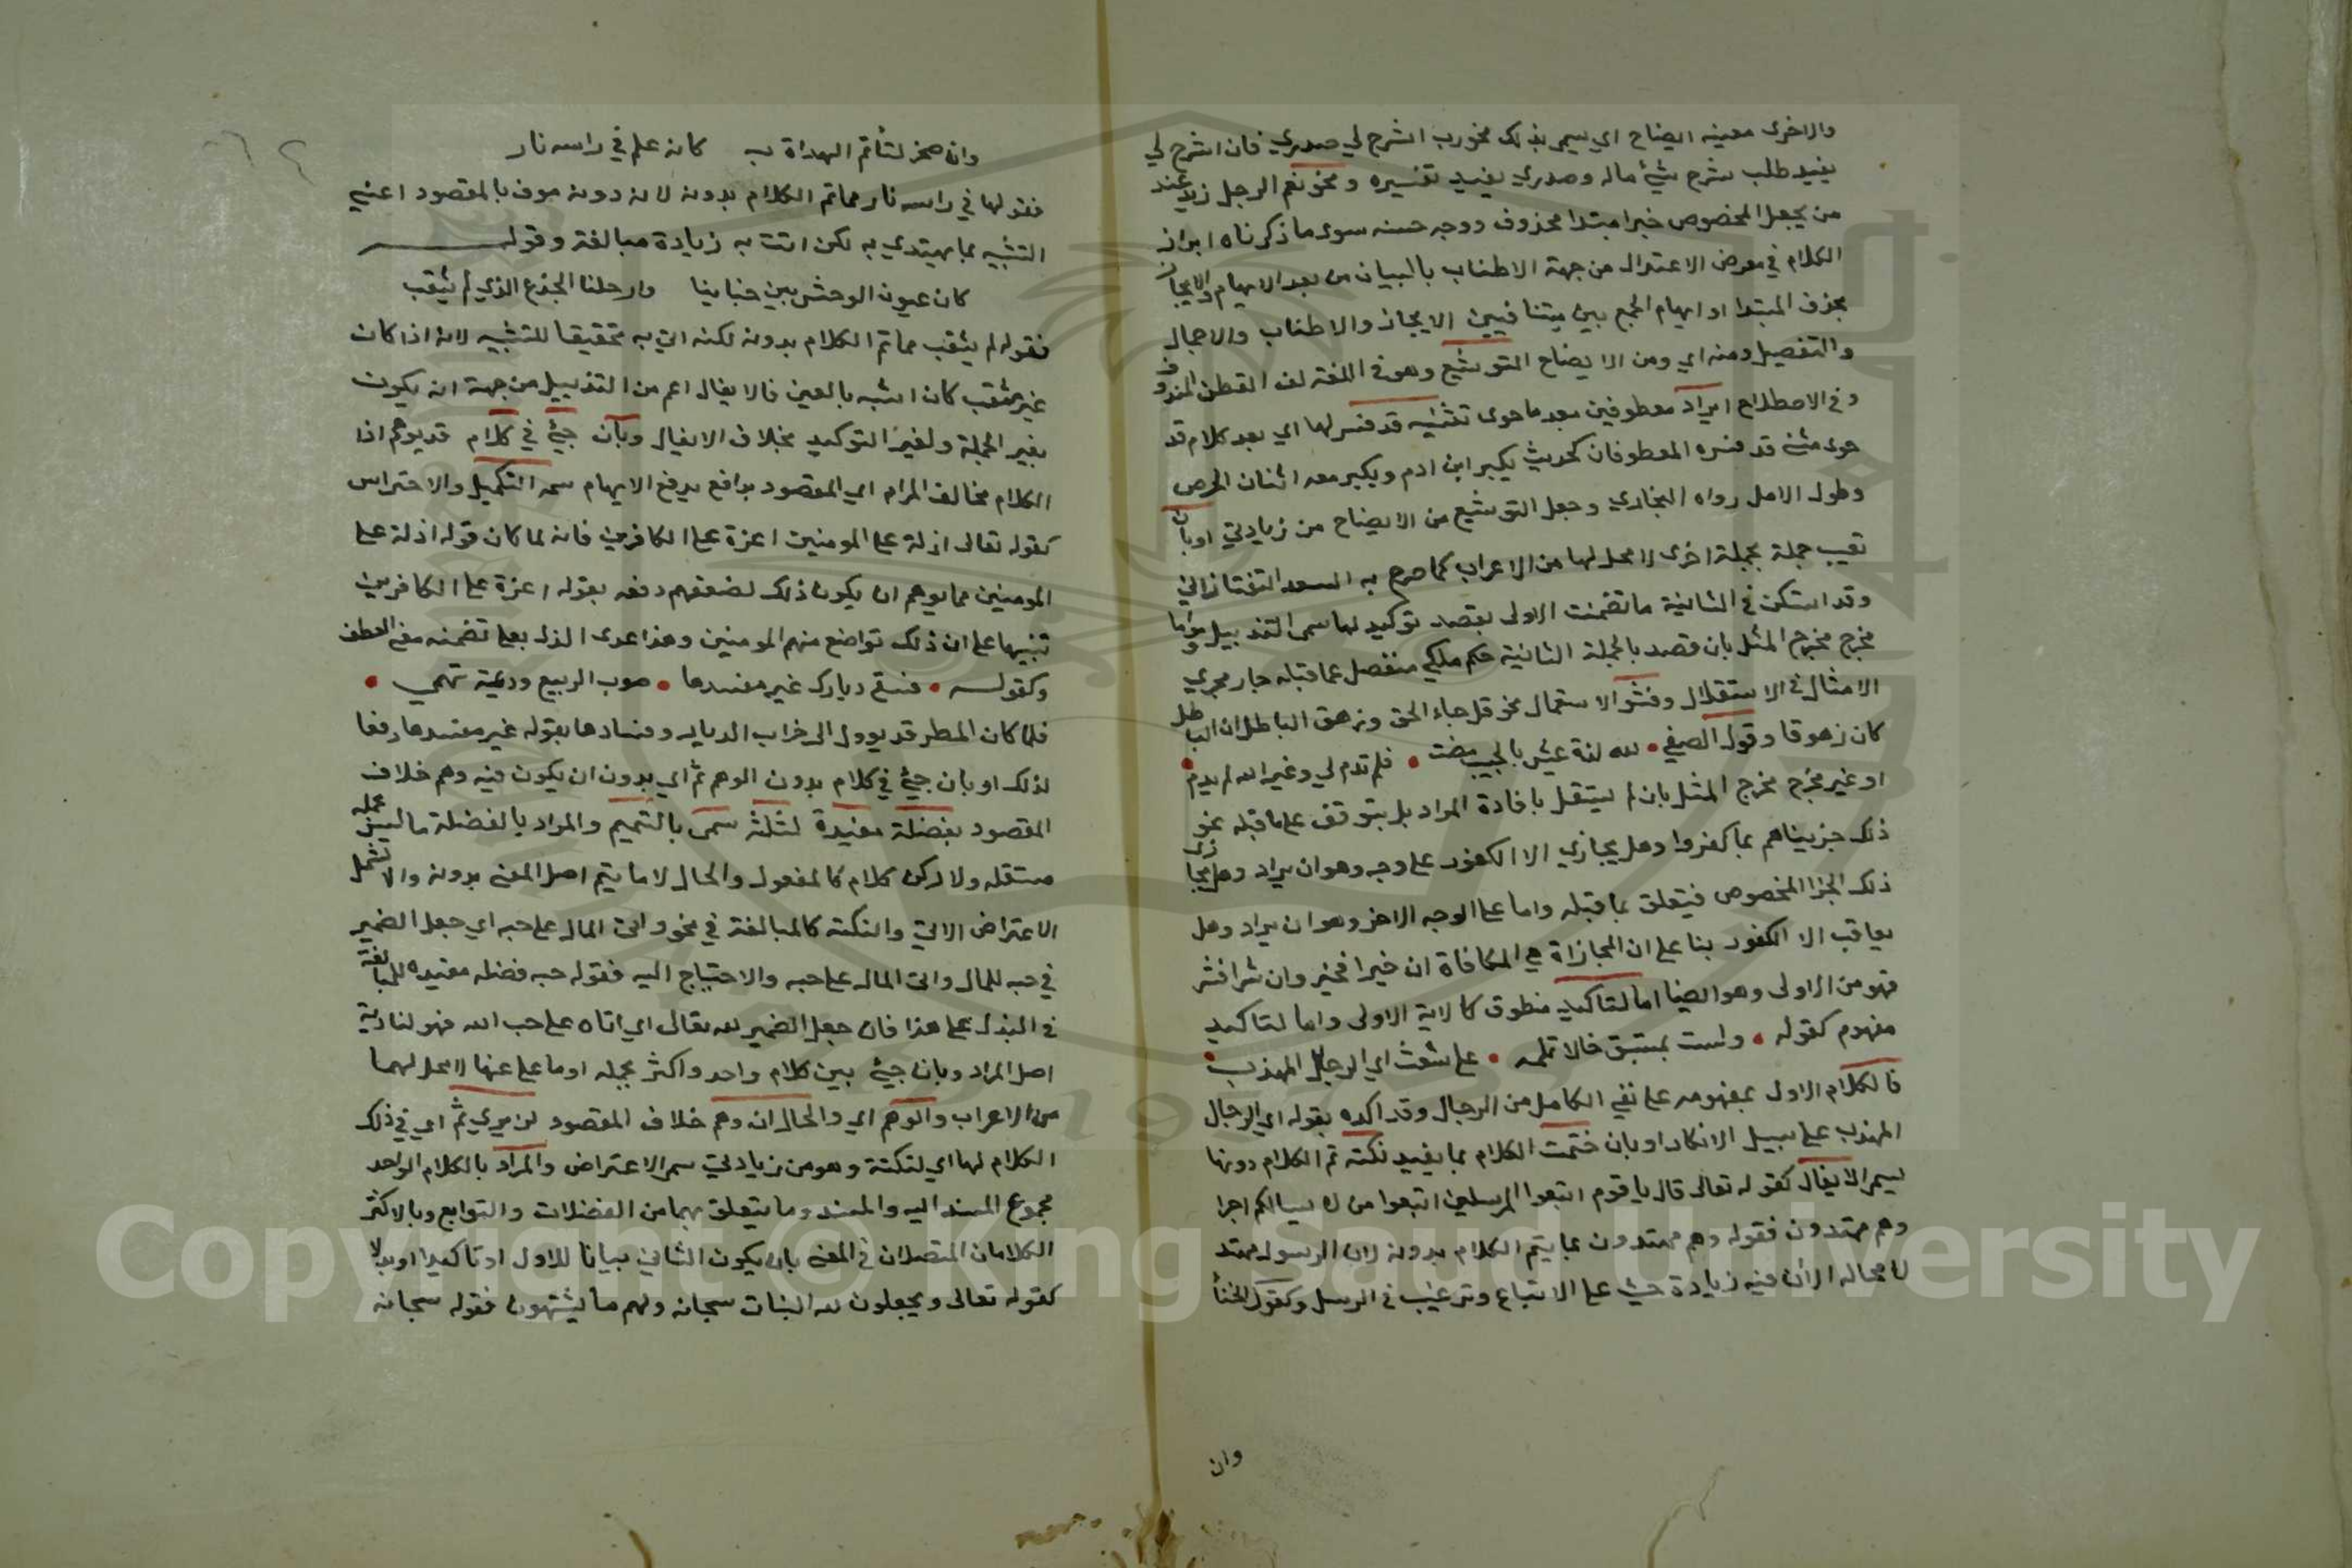 والاخرى معينه ايضاح اي يسمى بذلك نحو رب اشرح لي صدري فان اشرح لي
يفيد طلب شرح شيء ماله وصدري يفيد تفسيره ونحو نعم الرجل زيد عند
من يجعل المخصوص خبرا مبتدا محذوف ووجه حسنه سوى ما ذكرناه ابراز
الكلام في معرض الاعتدال من جهة الاطناب بالبيان من بعد الابهام والايجاز
بحذف المبتدا او ايهام الجمع بين متنافيين الايجاز والاطناب والاجمال
والتفصيل ومنه اي ومن الايضاح التوشيع وهو في اللغة لف القطن المندوف
وفي الاصطلاح ايراد معطوفين بعد ما حوى تثنيه قد فسر لها اي بعد كلام قد
حوى مثنى قد فسره المعطوفان كحديث يكبر ابن ادم ويكبر معه اثنتان الحرص
وطول الامل رواه البخاري وجعل التوشيع من الايضاح من زيادتي او بان
تعيب جملة بجملة اخرى لا محل لها من الاعراب كما صرح به السعد التفتازاني
وقد استكن في الثانية ما تضمنت الاولى بقصد توكيد لها سمى التذييل وما
خرج مخرج المثل بان قصد بالجملة الثانية حكم ملكي منفصل عما قبله جار مجرى
الامثال في الاستقلال وفشو الاستعمال نحو قل جاء الحق وزهق الباطل ان الباطل
كان زهوقا وقول الصفي • لله لذة عيش بالحبيب مضت • فلم تدم لي وغير الله لم يدم •
او غير مخرج مخرج المثل بان لم يستقل بافادة المراد بل يتوقف على ما قبله نحو
ذلك جزيناهم بما كفروا وهل يجازي الا الكفور على وجه وهو ان يراد وهل يجازى
ذلك الجزا المخصوص فيتعلق بما قبله واما على الوجه الاخر وهو ان يراد وهل
يعاقب الا الكفور بنا على ان المجازاة هي المكافاة ان خيرا فخير وان شرا فشر
فهو من الاولى وهو ايضا اما لتاكيد منطوق كالاية الاولى واما لتاكيد
مفهوم كقوله • ولست بمستبق خالا تلمه • على شعث اي الرجال المهذب •
فالكلام الاول بمفهومه على نفي الكامل من الرجال وقد اكده بقوله اي الرجال
المهذب على سبيل الانكار او بان ختمت الكلام بما يفيد نكتة تم الكلام دونها
يسمى الايغال كقوله تعالى قال يا قوم اتبعوا المرسلين اتبعوا من لا يسالكم اجرا
وهم مهتدون فقوله وهم مهتدون مما يتم الكلام بدونه لان الرسول مهتد
لا محاله الا ان فيه زيادة حث على الاتباع وترغيب في الرسل وكقول الخنسا
وان
وان صخرا لتأتم الهداة به كانه علم في راسه نار
فقولها في راسه نار مما تم الكلام بدونه لان دونه موف بالمقصود اعني
التشبيه بما يهتدي به لكن اتت به زيادة مبالغة وقوله
كان عيون الوحش بين خبائنا وارحلنا الجزع الذي لم يثقب
فقوله لم يثقب مما تم الكلام بدونه لكنه اتي به تحقيقا للتشبيه لانه اذا كان
غير مثقب كان اشبه بالعين فالايغال اعم من التذييل من جهة انه يكون
بغير الجملة ولغير التوكيد بخلاف الايغال وبان جيء في كلام قد يوهم اذا
الكلام مخالف المرام اي المقصود بدافع يدفع الايهام سمه التكميل والاحتراس
كقوله تعالى اذلة على المومنين اعزة على الكافرين فانه لما كان قوله اذلة على
المومنين مما يوهم ان يكون ذلك لضعفهم دفعه بقوله اعزة على الكافرين
تنبيها على ان ذلك تواضع منهم للمومنين وهذا عدى الذل بعلى لتضمنه معنى العطف
وكقوله • فسقى ديارك غير مفسدها • صوب الربيع وديمة تهمي •
فلما كان المطر قد يوول الى خراب الديار وفسادها بقوله غير مفسدها دفعا
لذلك او بان جيء في كلام بدون الوهم ثم اي بدون ان يكون فيه وهم خلاف
المقصود بفضلة مفيدة لنكتة سمى بالتتميم والمراد بالفضلة ما ليس جملة
مستقلة ولا ركن كلام كالمفعول والحال لا ما يتم اصل المعنى بدونه والا تشمل
الاعتراض الاتي والنكتة كالمبالغة في نحو واتى المال على حبه اي جعل الضمير
في حبه للمال واتى المال على حبه والاحتياج اليه فقوله حبه فضله مفيده للمبالغة
في البذل على هذا فان جعل الضمير لله تعالى اي اتاه على حب الله فهو لتادية
اصل المراد وبان جيء بين كلام واحد واكثر بجمله او ما على عنها لا محل لهما
من الاعراب والوهم اي والحال ان وهم خلاف المقصود لن يرى ثم اي في ذلك
الكلام لها اي لنكتة وهو من زيادتي سم الاعتراض والمراد بالكلام الواحد
مجموع المسند اليه والمسند وما يتعلق بهما من الفضلات والتوابع وبالاكثر
الكلامان المتصلان في المعنى بان يكون الثاني بيانا للاول او تاكيدا او بدلا
كقوله تعالى ويجعلون لله البنات سبحانه ولهم ما يشتهون فقوله سبحانه
Copyright © King Saud University